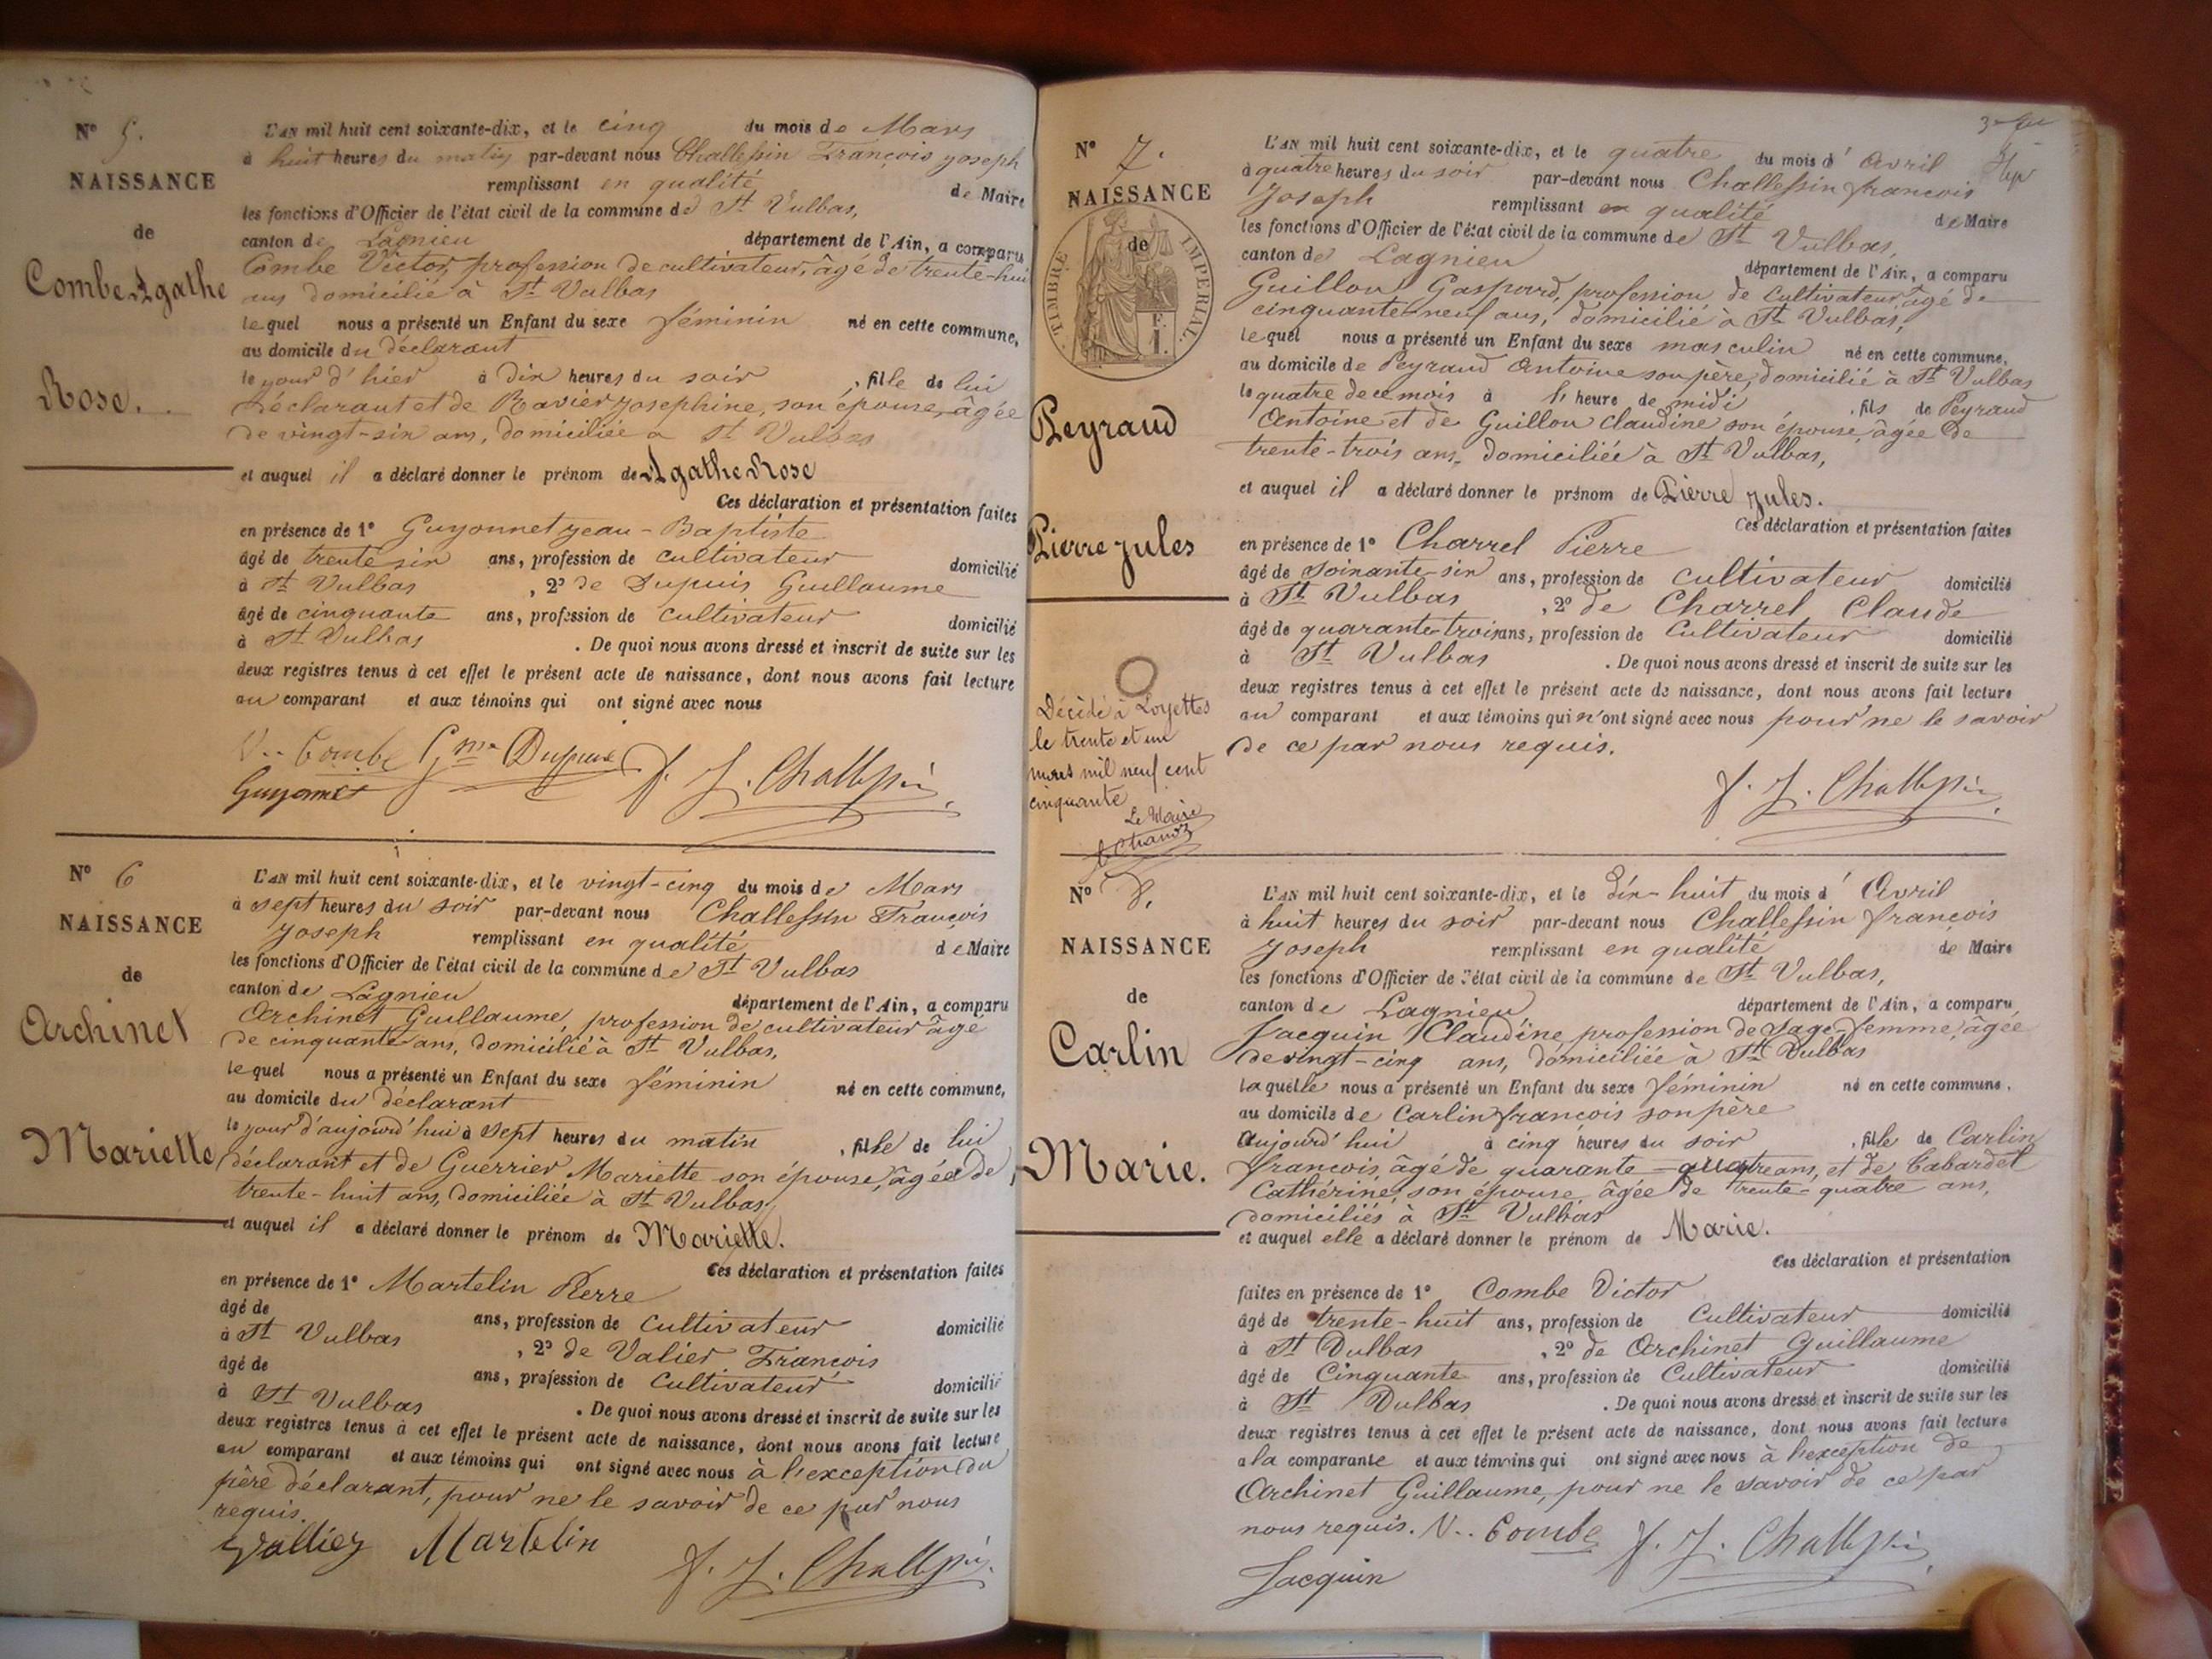 N° 5.
NAISSANCE
de
Combe Agathe
Rose.
L'AN mil huit cent soixante-dix, et le cinq du mois de Mars
à huit heures du matin par-devant nous Challessin François Joseph
remplissant en qualité de Maire
les fonctions d'Officier de l'état civil de la commune de St Vulbas,
canton de Lagnieu département de l'Ain, a comparu
Combe Victor, profession de cultivateur, âgé de trente-huit
ans domicilié à St Vulbas
lequel nous a présenté un Enfant du sexe féminin né en cette commune,
au domicile du déclarant
le jour d'hier à dix heures du soir, fille de lui
déclarant et de Ravier Josephine, son épouse, âgée
de vingt-six ans, domiciliée à St Vulbas
et auquel il a déclaré donner le prénom de Agathe Rose
Ces déclaration et présentation faites
en présence de 1° Guyonnet Jean-Baptiste
âgé de trente six ans, profession de cultivateur domicilié
à St Vulbas, 2° de Dupuis Guillaume
âgé de cinquante ans, profession de cultivateur domicilié
à St Vulbas. De quoi nous avons dressé et inscrit de suite sur les
deux registres tenus à cet effet le présent acte de naissance, dont nous avons fait lecture
au comparant et aux témoins qui ont signé avec nous
V.. Combe Gme Dupuis F. J. Challessin
Guyonnet
N° 6
NAISSANCE
de
Archinet
Mariette
L'AN mil huit cent soixante-dix, et le vingt-cinq du mois de Mars
à sept heures du soir par-devant nous Challessin François
Joseph remplissant en qualité de Maire
les fonctions d'Officier de l'état civil de la commune de St Vulbas
canton de Lagnieu département de l'Ain, a comparu
Archinet Guillaume, profession de cultivateur âgé
de cinquante ans, domicilié à St Vulbas,
lequel nous a présenté un Enfant du sexe féminin né en cette commune,
au domicile du déclarant
le jour d'aujourd'hui à sept heures du matin, fille de lui
déclarant et de Guerrier Mariette son épouse, âgée de
trente-huit ans, domiciliée à St Vulbas,
et auquel il a déclaré donner le prénom de Mariette.
Ces déclaration et présentation faites
en présence de 1° Martelin Pierre
âgé de ans, profession de cultivateur domicilié
à St Vulbas, 2° de Valier François
âgé de ans, profession de cultivateur domicilié
à St Vulbas. De quoi nous avons dressé et inscrit de suite sur les
deux registres tenus à cet effet le présent acte de naissance, dont nous avons fait lecture
au comparant et aux témoins qui ont signé avec nous à l'exception du
père déclarant, pour ne le savoir de ce par nous
requis.
Vallier Martelin F. J. Challessin
N° 7.
NAISSANCE
de
TIMBRE IMPERIAL
Peyraud
Pierre Jules
Décédé à Loyettes
le trente et un
mars mil neuf cent
cinquante
Le Maire
L'AN mil huit cent soixante-dix, et le quatre du mois d'Avril
à quatre heures du soir par-devant nous Challessin François
Joseph remplissant en qualité de Maire
les fonctions d'Officier de l'état civil de la commune de St Vulbas,
canton de Lagnieu département de l'Ain, a comparu
Guillon Gaspard, profession de cultivateur âgé de
cinquante-neuf ans, domicilié à St Vulbas,
lequel nous a présenté un Enfant du sexe masculin né en cette commune,
au domicile de Peyraud Antoine son père, domicilié à St Vulbas
le quatre de ce mois à l'heure de midi, fils de Peyraud
Antoine et de Guillon Claudine son épouse, âgée de
trente-trois ans, domiciliée à St Vulbas,
et auquel il a déclaré donner le prénom de Pierre Jules.
Ces déclaration et présentation faites
en présence de 1° Charrel Pierre
âgé de soixante-six ans, profession de cultivateur domicilié
à St Vulbas, 2° de Charrel Claude
âgé de quarante-trois ans, profession de Cultivateur domicilié
à St Vulbas. De quoi nous avons dressé et inscrit de suite sur les
deux registres tenus à cet effet le présent acte de naissance, dont nous avons fait lecture
au comparant et aux témoins qui n'ont signé avec nous pour ne le savoir
de ce par nous requis.
F. J. Challessin
N° 8.
NAISSANCE
de
Carlin
Marie.
L'AN mil huit cent soixante-dix, et le dix-huit du mois d'Avril
à huit heures du soir par-devant nous Challessin François
Joseph remplissant en qualité de Maire
les fonctions d'Officier de l'état civil de la commune de St Vulbas,
canton de Lagnieu département de l'Ain, a comparu
Jacquin Claudine profession de Sage-femme, âgée
de vingt-cinq ans, domiciliée à St Vulbas
laquelle nous a présenté un Enfant du sexe féminin né en cette commune,
au domicile de Carlin françois son père
aujourd'hui à cinq heures du soir, fille de Carlin
françois, âgé de quarante-quatre ans, et de Cabardet
Cathérine, son épouse âgée de trente-quatre ans,
domiciliés à St Vulbas
et auquel elle a déclaré donner le prénom de Marie.
Ces déclaration et présentation
faites en présence de 1° Combe Victor
âgé de trente-huit ans, profession de Cultivateur domicilié
à St Vulbas, 2° de Archinet Guillaume
âgé de Cinquante ans, profession de Cultivateur domicilié
à St Vulbas. De quoi nous avons dressé et inscrit de suite sur les
deux registres tenus à cet effet le présent acte de naissance, dont nous avons fait lecture
a la comparante et aux témoins qui ont signé avec nous à l'exception de
Archinet Guillaume, pour ne le savoir de ce par
nous requis. V.. Combe F. J. Challessin
Jacquin